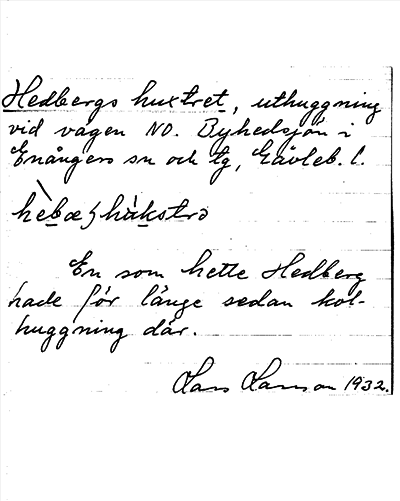 Hedbergs huxtret, uthuggning
vid vägen NO. Byhedsjön i
Enångers sn och tg, Gävleb. l.
hèbæʒhàkstrə
En som hette Hedberg
hade för länge sedan kol-
huggning där.
Lars Larsson 1932.